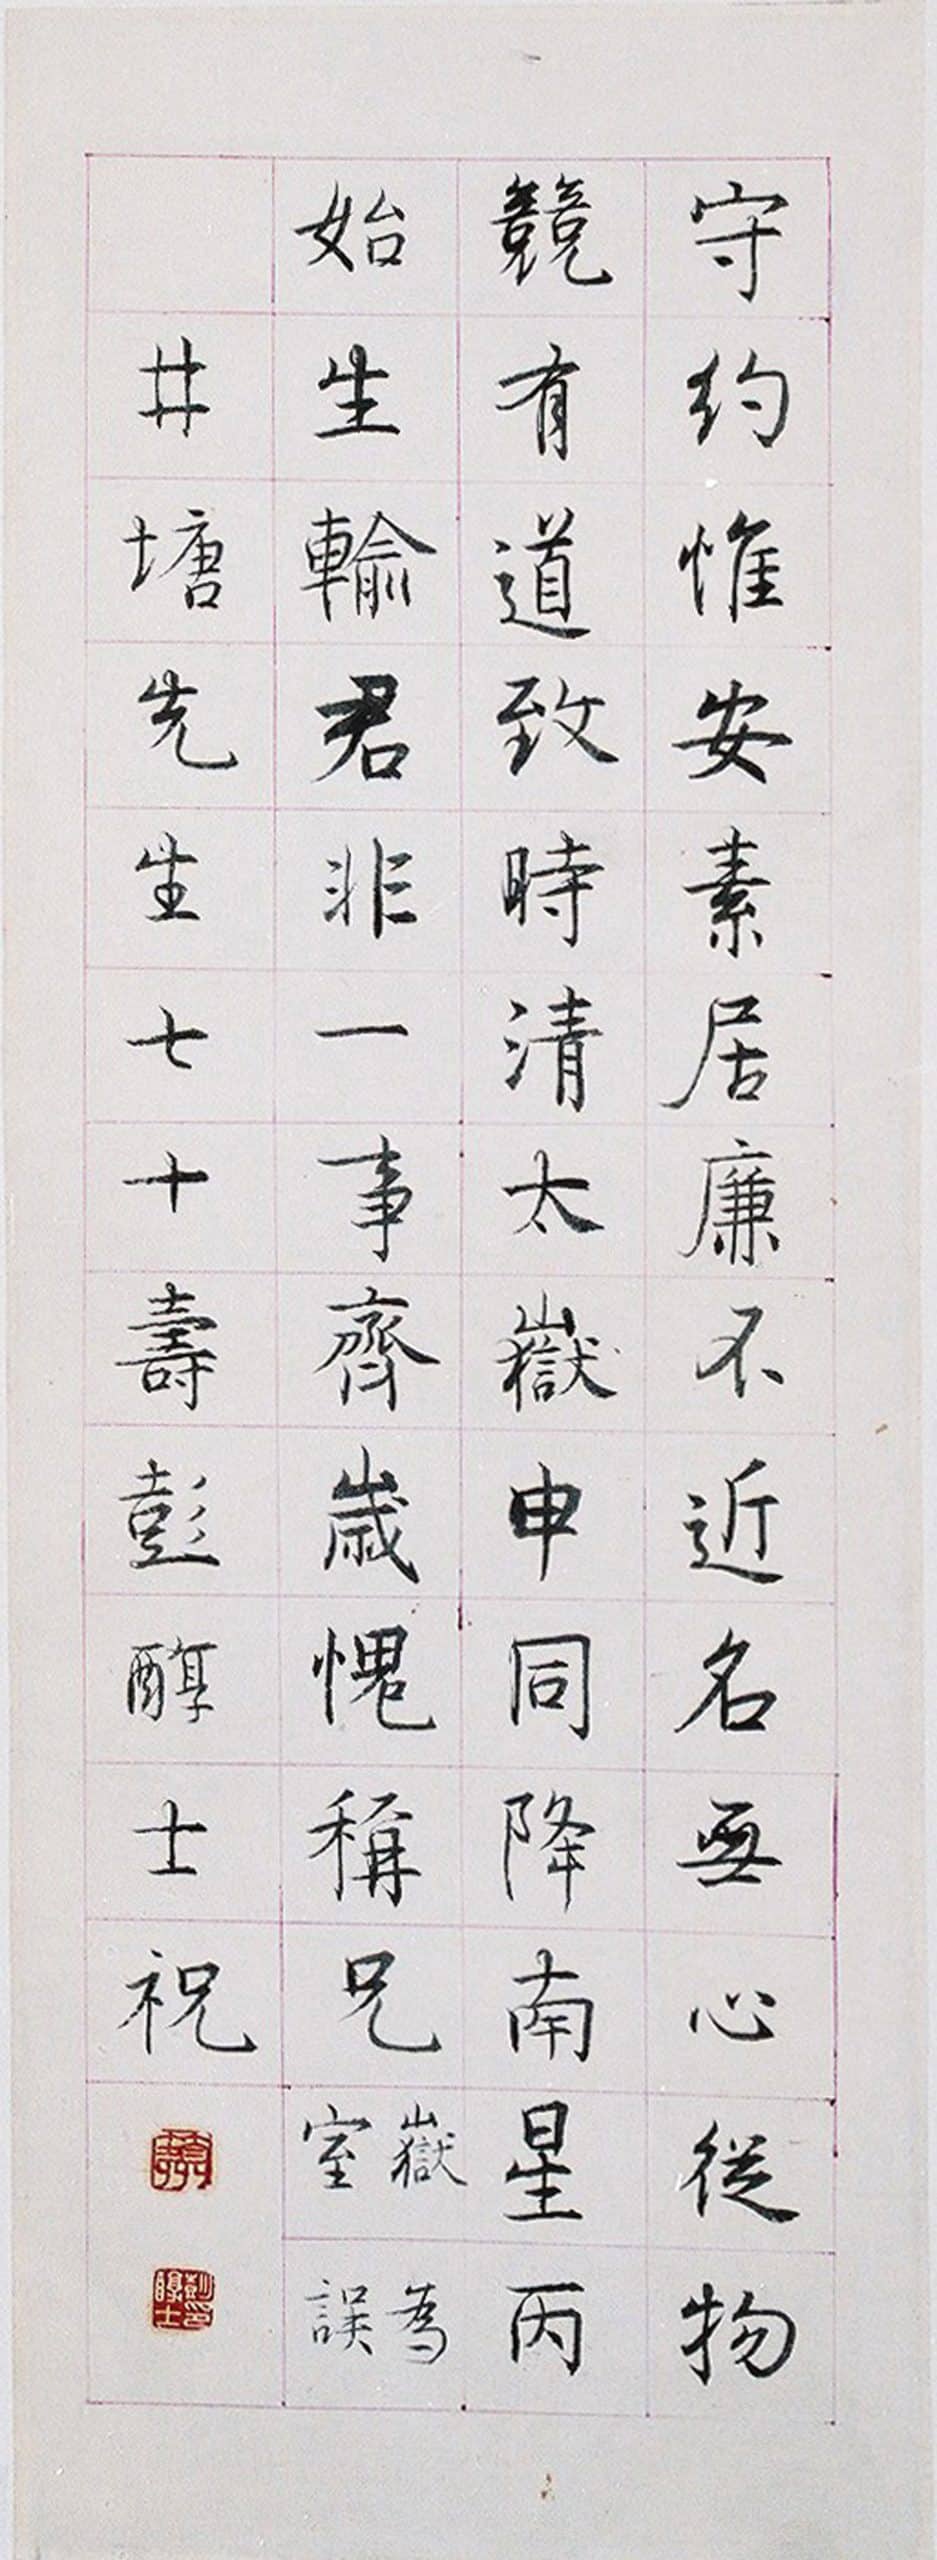 守約惟安素居廉不近名無心從物
競有道致時清太嶽申同降南星丙
始生輸君非一事齊歲愧稱兄嶽為
室誤
井塘先生七十壽彭醇士祝
彭印
醇士